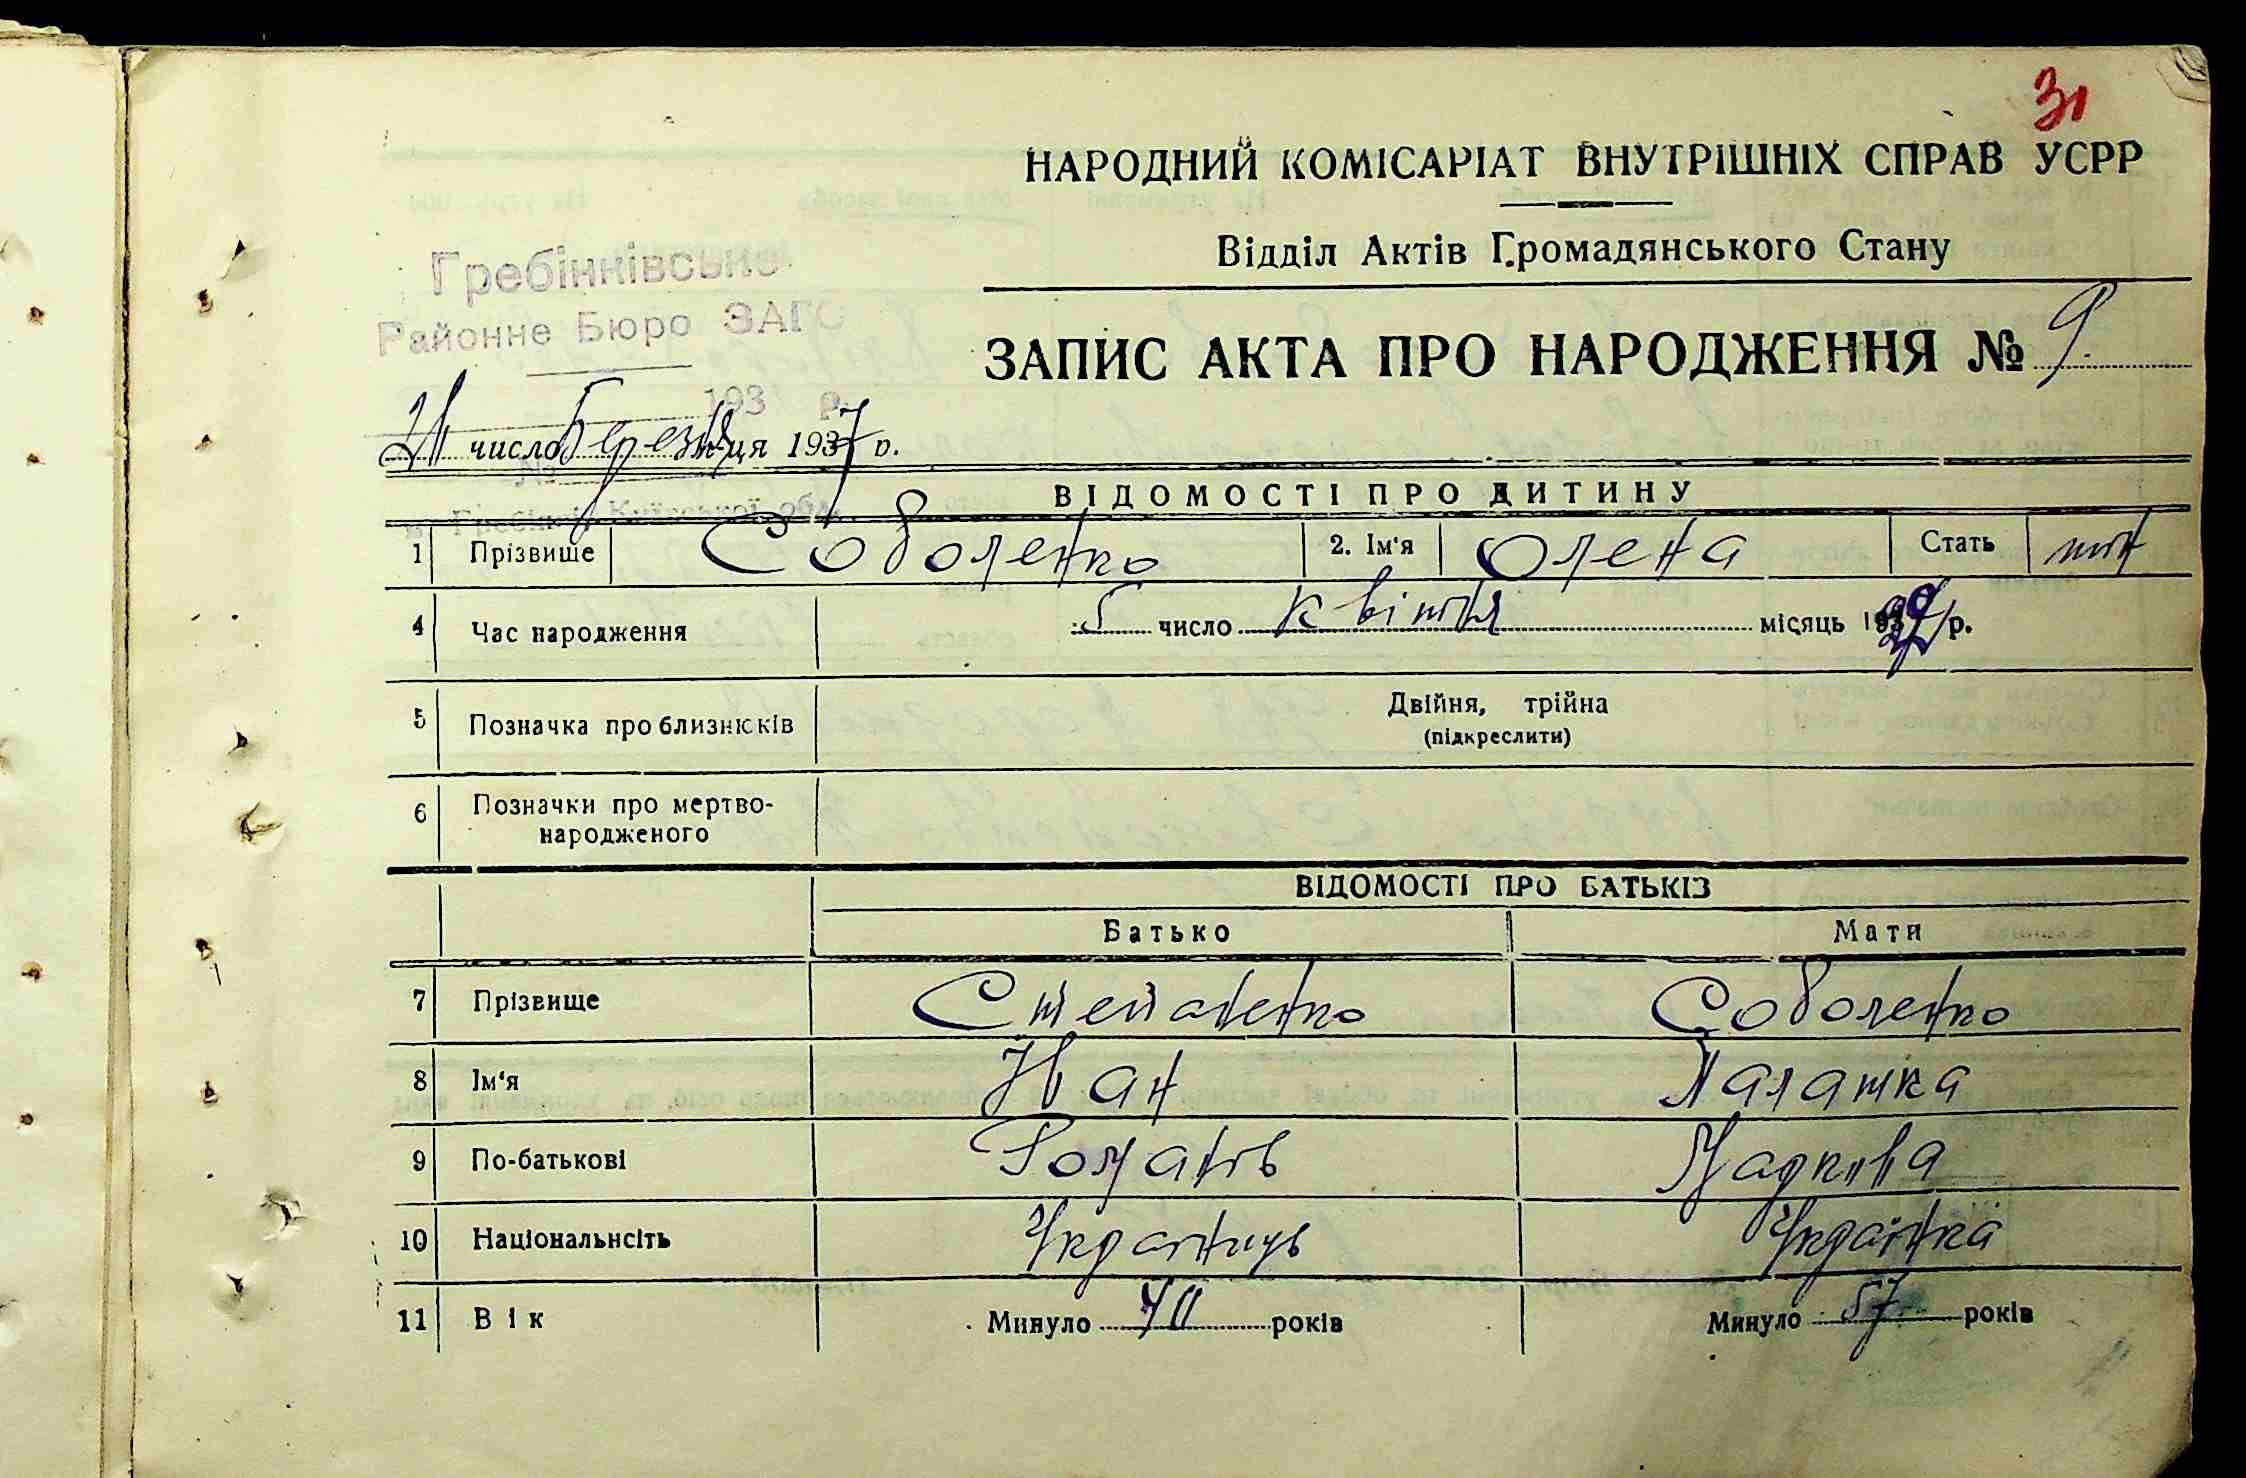 31
НАРОДНИЙ КОМІСАРІАТ ВНУТРІШНІХ СПРАВ УСРР
Відділ Актів Громадянського Стану
Гребінківське
Районне Бюро ЗАГС
193 р.
ЗАПИС АКТА ПРО НАРОДЖЕННЯ № 9.
21 число Березня ця 1937 р.
№
м. Гребінки Київської обл.
ВІДОМОСТІ ПРО ДИТИНУ
1 Прізвище Соболенко 2. Ім'я Олена Стать жін
4 Час народження 5 число квітня місяць р.
5 Позначка про близнюків Двійня, трійна
(підкреслити)
6 Позначки про мертво-
народженого
ВІДОМОСТІ ПРО БАТЬКІЗ
Батько Мати
7 Прізвище Степаненко Соболенко
8 Ім'я Іван Палажка
9 По-батькові Романів Маркова
10 Національнсіть Українець Українка
11 Вік Минуло 70 років Минуло 57 років